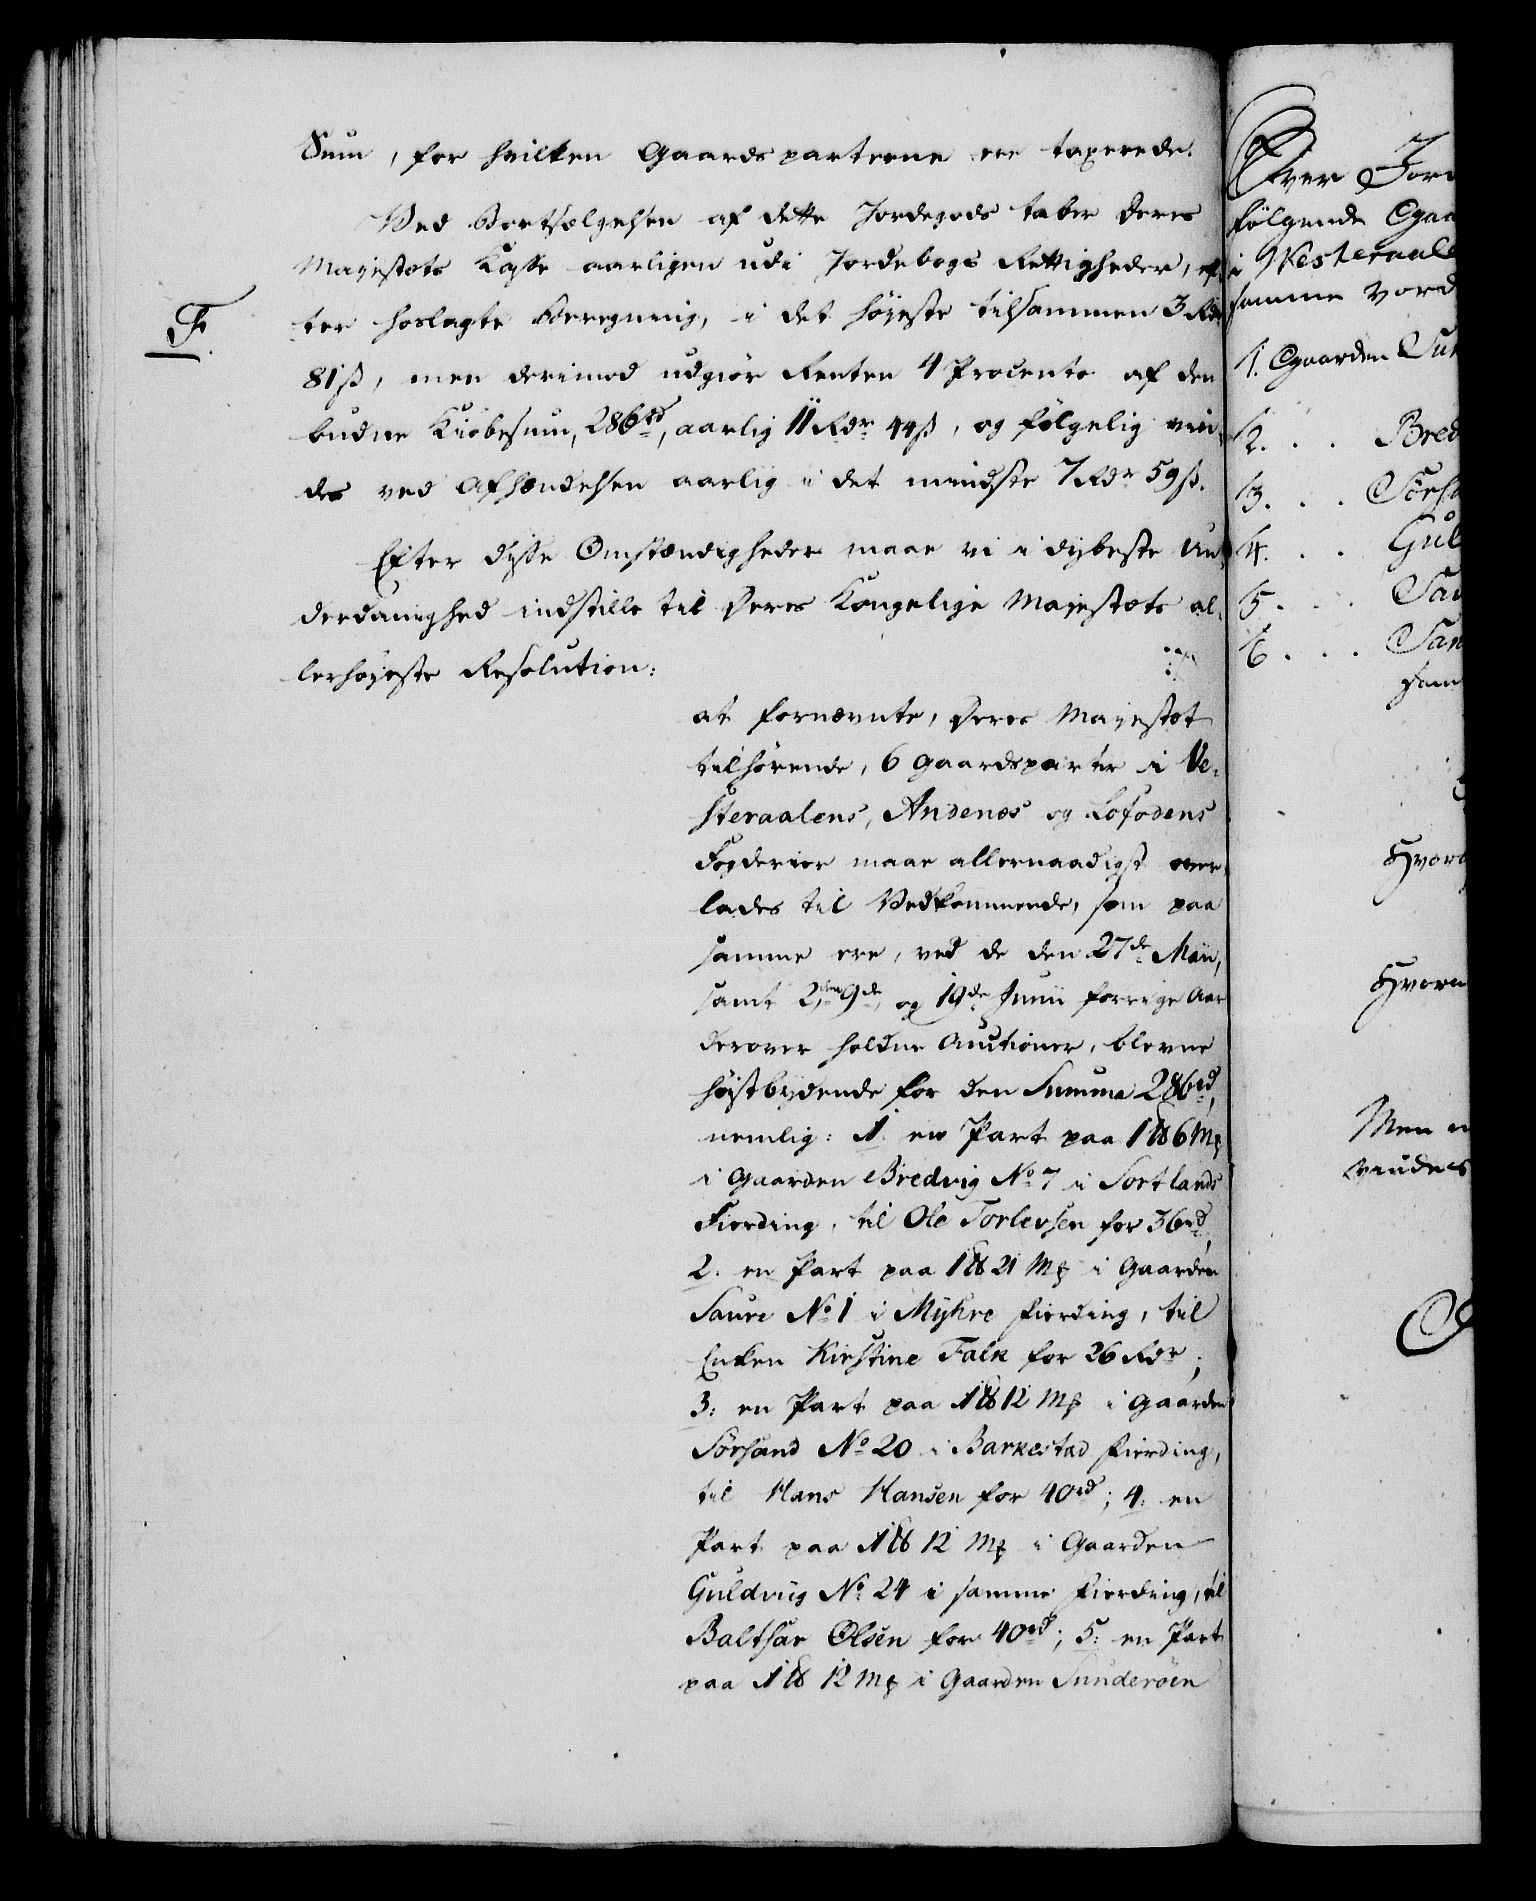 Sum, for hvilken Gaardsparterne ere taxerede.
Ved Bortsælgelsen af dette Jordegods taber Deres
Majestæts Kasse aarligen udi Jordebogs Rettigheder, ef-
F.
ter hoslagte Beregning, i det højeste tilsammen 3 Rdr
81 ß, men derimod udgiør Renten 4 Procento af den
budne Kiøbesum, 286 rd, aarlig 11 Rdr 44 ß, og følgelig vin-
des ved Afhændelsen aarlig i det mindste 7 Rdr 59 ß.
Efter disse Omstændigheder maae vi i dybeste Un-
derdanighed indstille til Deres Kongelige Majestæts al-
lerhøjeste Resolution:
at fornævnte, Deres Majestæt
tilhørende, 6 Gaardsparter i Ve-
steraalens, Andenes og Lofodens
Fogderier maae allernaadigst over-
lades til Vedkommende, som paa
samme ere, ved de den 27de Maii,
samt 2den, 9de og 19de Junii forrige Aar
derover holdne Auctioner, blevne
højstbydende for den Summa 286 rd,
nemlig: 1. en Part paa 1 ℔ 6 Mk
i Gaarden Bredvig No 7 i Sortlands
Fierding, til Ole Torlevsen for 36 rd;
2. en Part paa 1 ℔ 21 Mk i Gaarden
Saure No 1 i Myhre Fierding, til
Enken Kirstine Falk for 26 Rdr;
3: en Part paa 1 ℔ 12 Mk i Gaarden
Sörsand No 20 i Barkestad Fierding,
til Hans Hansen for 40 rd; 4: en
Part paa 1 ℔ 12 Mk i Gaarden
Guldviig No 24 i samme Fierding, til
Balthsar Olsen for 40 rd; 5: en Part
paa 1 ℔ 12 Mk i Gaarden Sunderöen
Over Jor
følgende Gaa
i Westeraale
samme vord
1. Gaarden Sun
2. . . Bred
3. . . Sörsa
4. . . Gul
5. . . Sau
6. . . San
Hvor
Hvor
Men
vindes